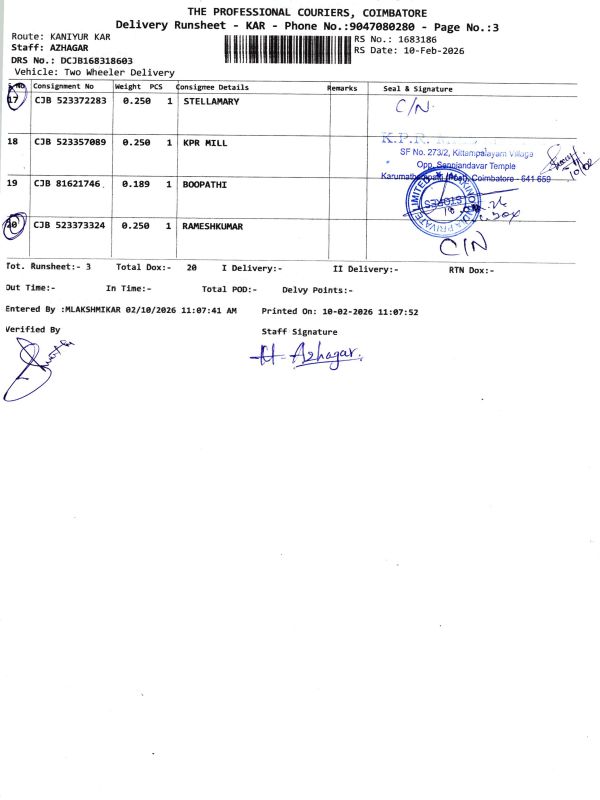 THE PROFESSIONAL COURIERS, COIMBATORE
Delivery Runsheet - KAR - Phone No.:9047080280 - Page No.:3
Route: KANIYUR KAR
RS No.: 1683186
Staff: AZHAGAR
RS Date: 10-Feb-2026
DRS No.: DCJB168318603
Vehicle: Two Wheeler Delivery
S.No Consignment No Weight PCS Consignee Details Remarks Seal & Signature
17 CJB 523372283 0.250 1 STELLAMARY C/N
18 CJB 523357089 0.250 1 KPR MILL
K.P.R.
SF No. 273/2, Kittampalayam Village
Opp. Senniandavar Temple
Coimbatore - 641 659
10/02
19 CJB 81621746 0.189 1 BOOPATHI
STORES
PRIVATE LIMITED
20 CJB 523373324 0.250 1 RAMESHKUMAR C/N
Tot. Runsheet:- 3 Total Dox:- 20 I Delivery:- II Delivery:- RTN Dox:-
Out Time:- In Time:- Total POD:- Delvy Points:-
Entered By :MLAKSHMIKAR 02/10/2026 11:07:41 AM Printed On: 10-02-2026 11:07:52
Verified By Staff Signature
Azhagar.